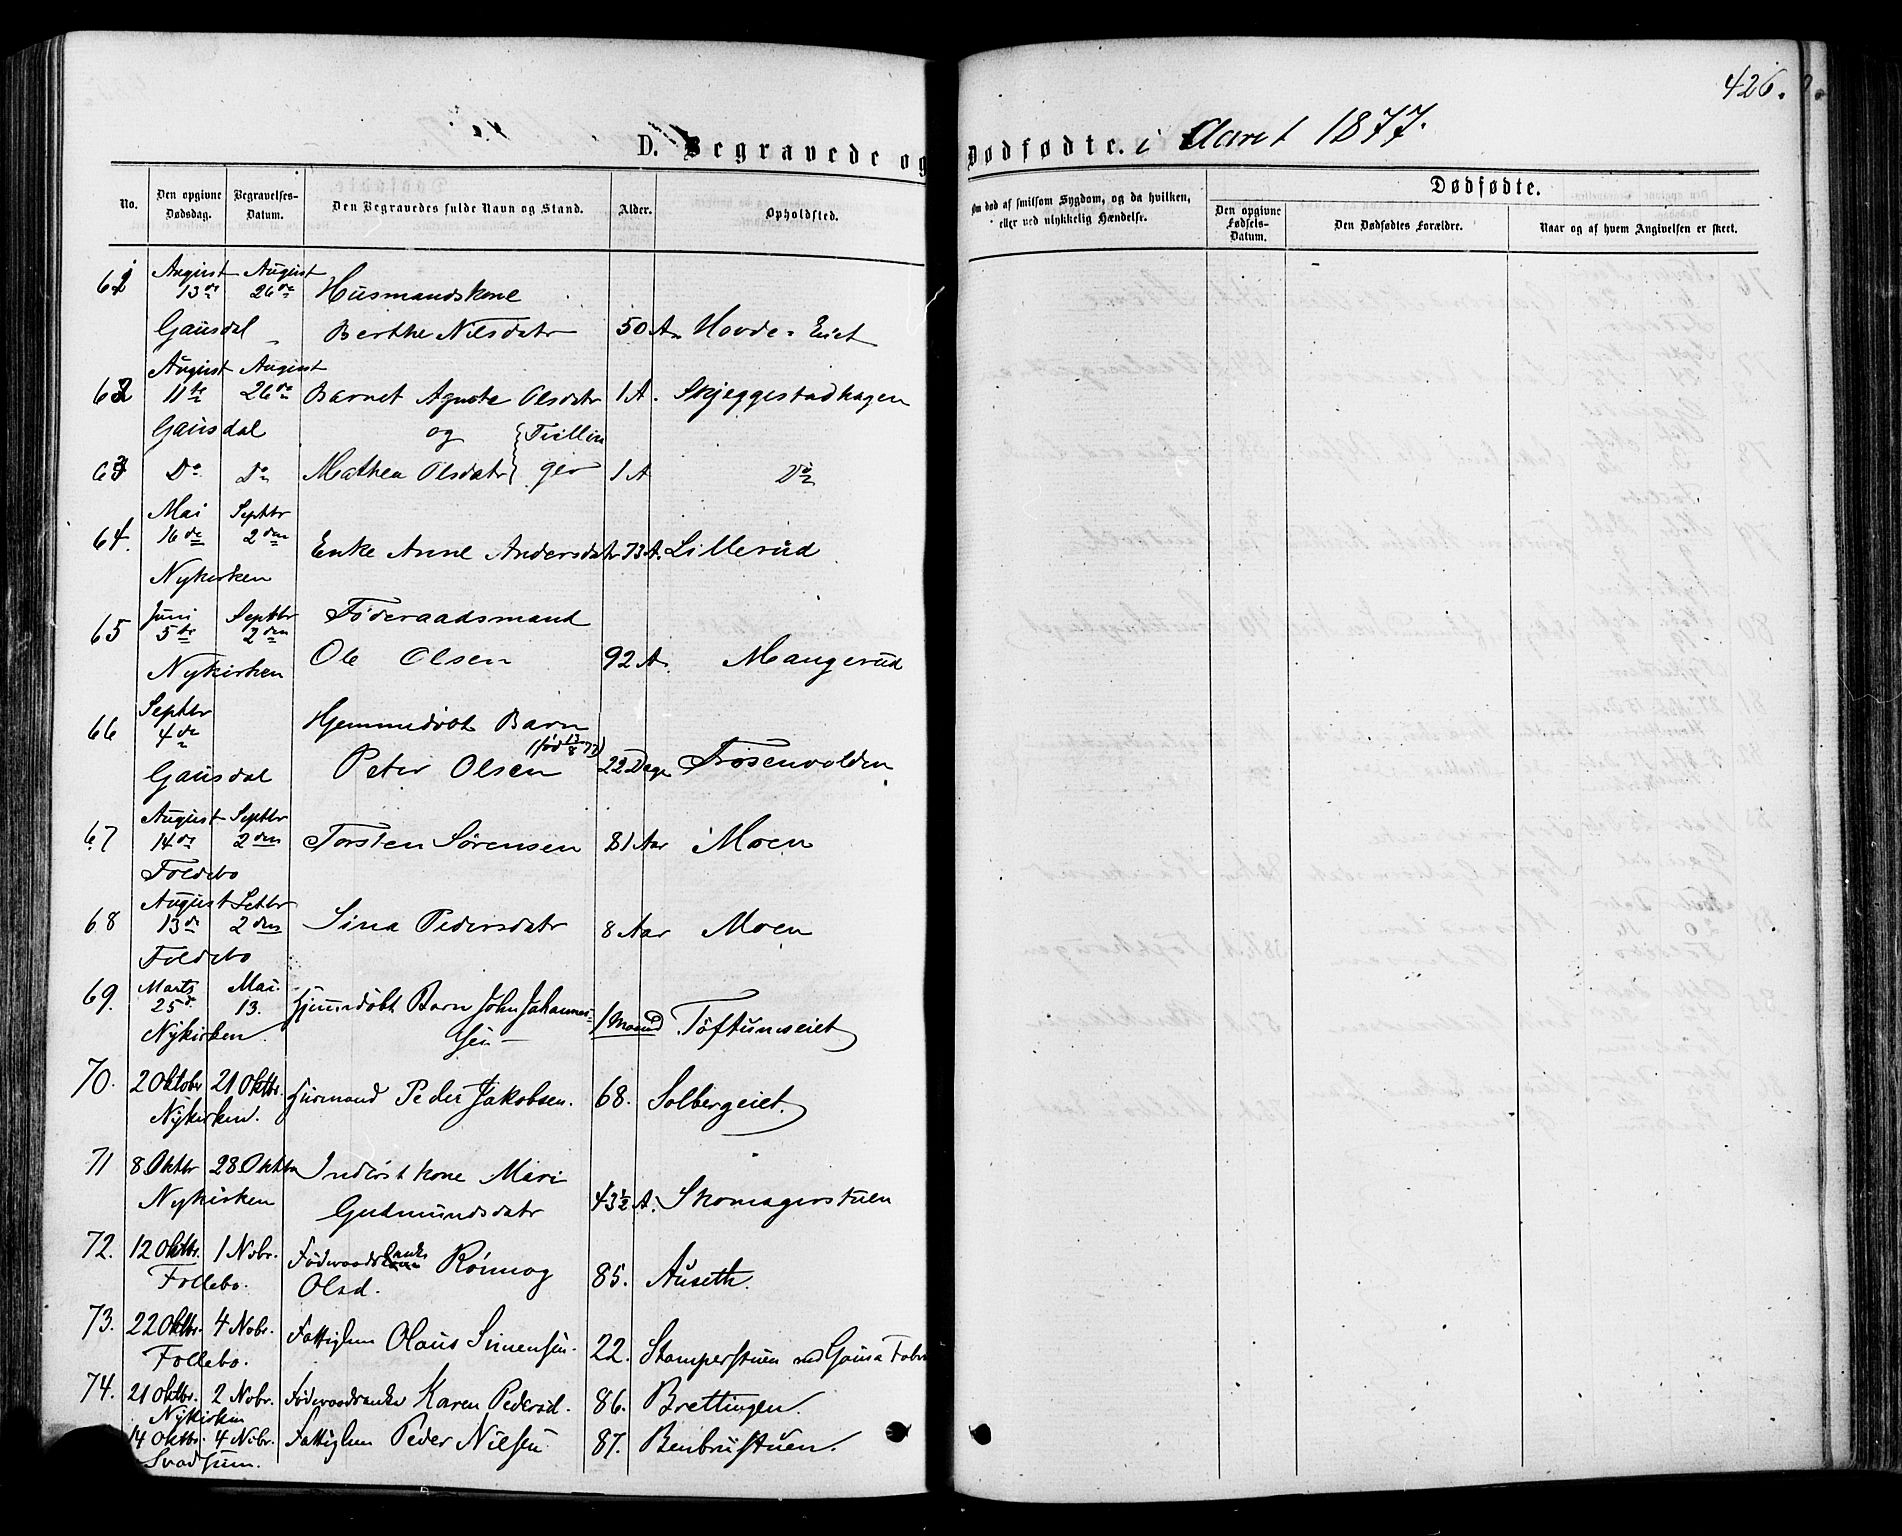 426.
D. Begravede og Dødfødte. i Aaret 1877.
No. Den opgivne Dødsdag. Begravelses-Datum. Den Begravedes fulde Navn og Stand. Alder. Opholdsted. Om død af smitsom Sygdom, og da hvilken, eller ved ulykkelig Hændelse.
Dødfødte.
Den opgivne Fødsels-Datum. Den Dødfødtes Forældre. Naar og af hvem Angivelsen er skeet.
61 August 13de August 26de Husmandskone
Gausdal Berthe Nilsdatr 50 A. Hovde-Eiet
62 August 11te August 26de Barnet Agnete Olsdatr 1 A. Skjeggestadhagen
Gausdal og Tvillin
63 Do Do Mathea Olsdatr ger 1 A Do
64. Mai 16de Septbr 2den Enke Anne Andersdatr 73 A. Lillerud
Nykirken
65 Juni 5te Septbr 2den Føderaadsmand
Nykirken Ole Olsen 92 A. Mangerud
66 Septbr 4de Hjemmedøbt Barn
(født 13/8 77)
Gausdal Peter Olsen 22 Dage Frøsenvolden
67 August 14de Septbr 2den Torsten Sørensen 81 Aar Moen
Foldebo
68 August 13de Setbr 2den Sina Pedersdatr 8 Aar Moen
Foldebo
69. Marts 25d. Mai 13. Hjemmdøbt Barn John Johannes-
Nykirken. sen 1 Maaned Toftumseiet
70. 2 Oktobr 21 Oktbr. Husmand Peder Jakobsen. 68. Solbergeiet.
Nykirken.
71 8 Oktbr 28. Oktbr Inderst kone Mari
Nykirken Gudmundsdatr 43½ A. Skomagerstuen
72. 12 Oktbr. 1 Nobr. Føderaadsenke Rønnog
Follebo. Olsd. 85. Auseth.
73. 22 Oktbr. 4 Nobr. Fattiglem Olaus Simensen. 22. Stamperstuen ved Gausa Fabr
Follebo.
74. 21 Oktbr. 2 Nobr. Føderaadsenke Karen Pedersd. 86. Brettingen.
Nykirken
14 Oktbr. 4 Nobr. Fattiglem Peder Nilsen 87. Benbrustuen.
Svadsum.